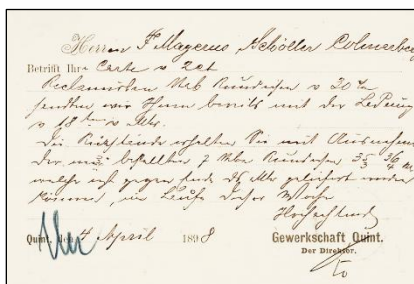 Herrn P Magerus Schöller Colmarberg
Betrifft Ihre Carte v 2ct
Reclamirten Stab Rundeisen v 30
sendten wir Ihnen bereits mit der Ladung
v 18 ten v Mts.
Die Rückstände erhalten Sie mit Ausnahme
der bestellten 7 Stäbe Rundeisen
welche erst gegen Ende ds Mts geliefert werden
können, im Laufe dieser Woche
Hochachtend
Quint, den 4 April 1898
Gewerkschaft Quint.
Der Direktor.